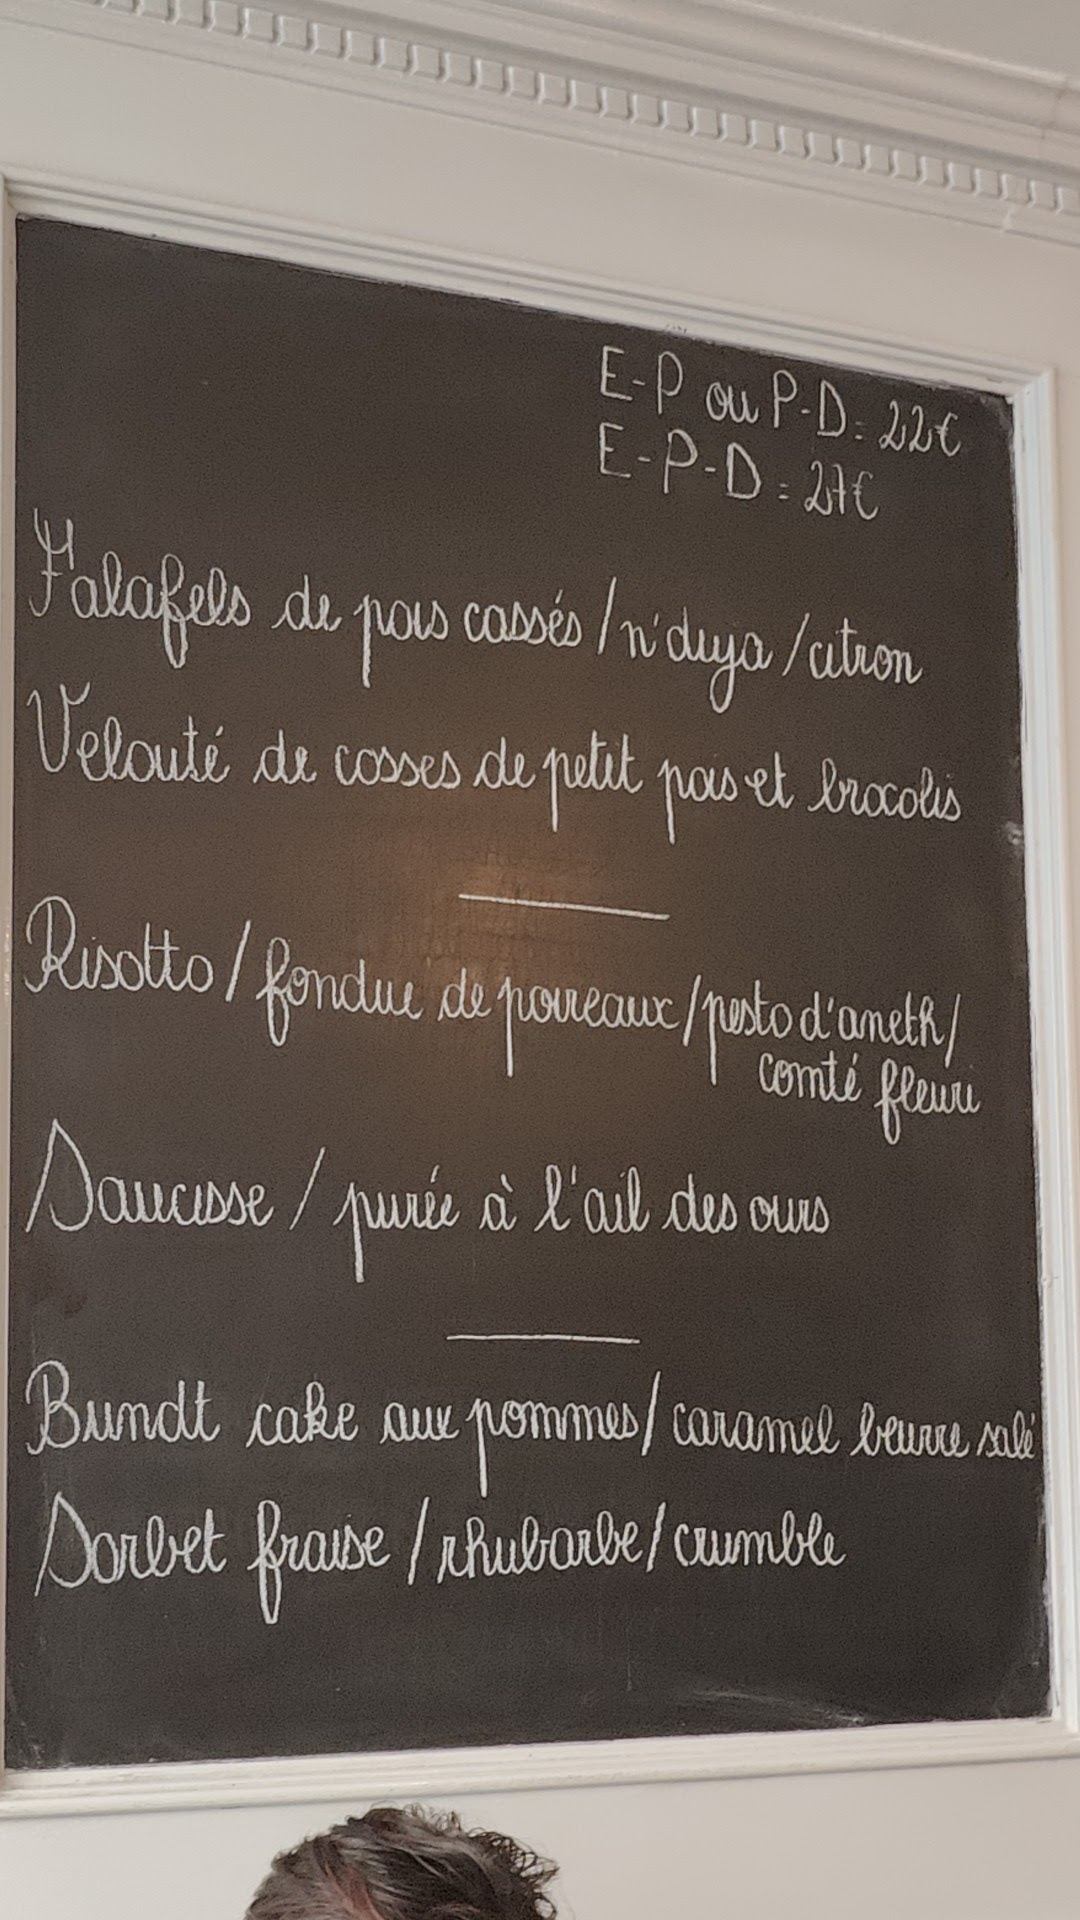 E-P ou P-D = 22€
E-P-D = 27€
Falafels de pois cassés / n'duja / citron
Velouté de cosses de petit pois et brocolis
Risotto / fondue de poireaux / pesto d'aneth /
comté fleuri
Saucisse / purée à l'ail des ours
Bundt cake aux pommes / caramel beurre salé
Sorbet fraise / rhubarbe / crumble